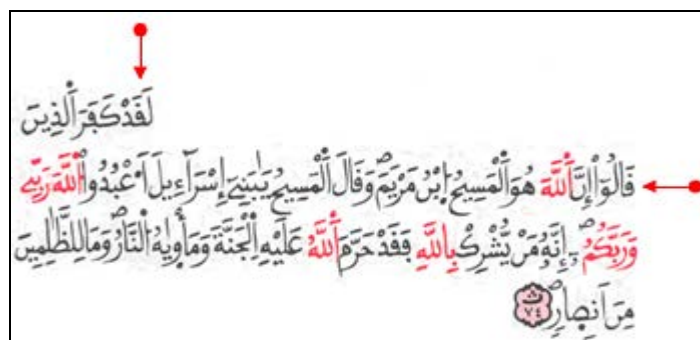 لَقَدْ كَفَرَ اَلذِينَ
قَالُوٓاْ إِنَّ اَللَّهَ هُوَ اَلْمَسِيحُ اُبْنُ مَرْيَمَۖ وَقَالَ اَلْمَسِيحُ يَٰبَنِےٓ إِسْرَآءِيلَ اَ۟عْبُدُواْ اُللَّهَ رَبِّے
وَرَبَّكُمُۥٓۖ إِنَّهُۥ مَنْ يُّشْرِكْ بِاللَّهِ فَقَدْ حَرَّمَ اَللَّهُ عَلَيْهِ اِلْجَنَّةَ وَمَأْو۪يٰهُ اُلنَّارُۖ وَمَا لِلظَّٰلِمِينَ
مِنَ اَنصٍارِۖ ث ٧٤